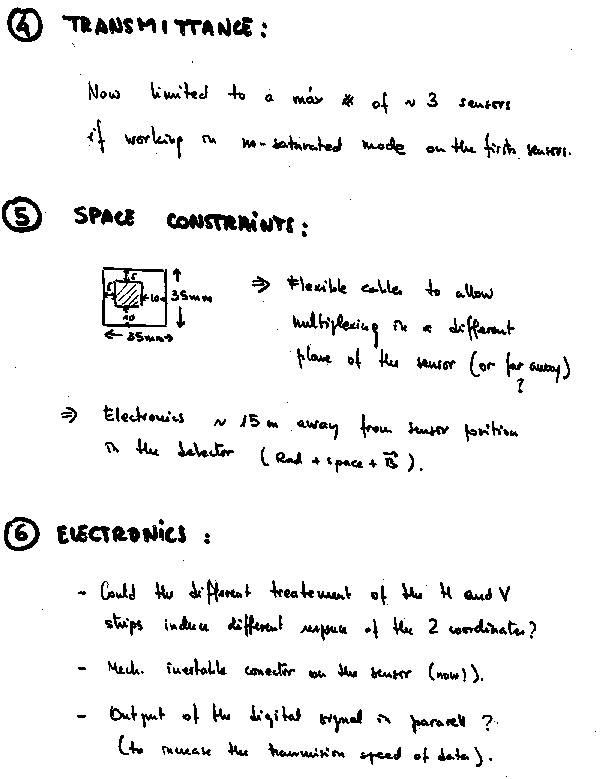 ④ TRANSMITTANCE:
Now limited to a máx # of ~ 3 sensors
if working in no-saturated mode on the firsts sensors.
⑤ SPACE CONSTRAINTS:
5
5 10 35mm
10
35mm
⇒ Flexible cables to allow
multiplexing in a different
plane of the sensor (or far away)
?
⇒ Electronics ~ 15 m away from sensor position
in the detector (Rad + space + B⃗).
⑥ ELECTRONICS:
- Could the different treatement of the H and V
strips induce different response of the 2 coordinates?
- Mech. inestable conector on the sensor (now!).
- Output of the digital signal in pararell?
(to increase the transmision speed of data).